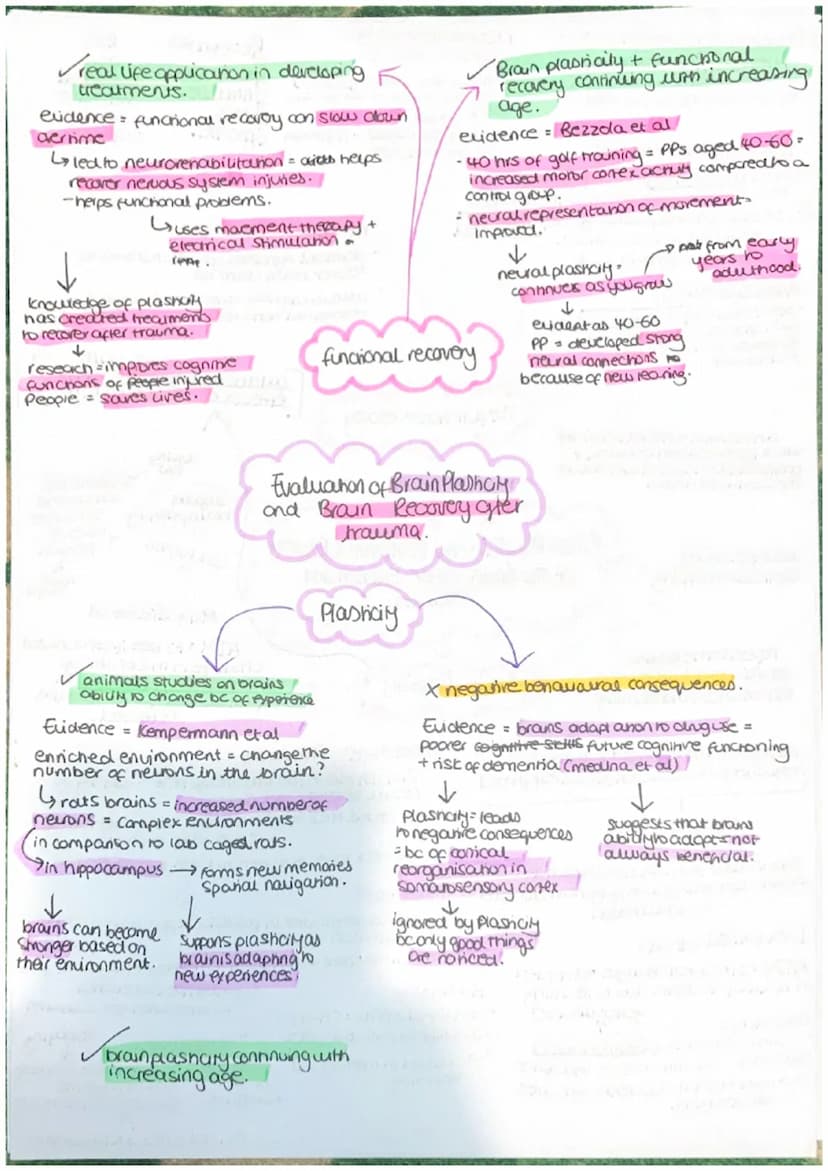 ✓ real life application in developing
treatments.
evidence = functional recovery can slow down
aertime
↳ led to neurorehabilitation = helps
recover nervous system injuries.
- helps functional problems.
↳ uses movement therapy +
electrical stimulation
↓
knowledge of plasticity
has created treatments
to recover after trauma.
↓
reseach = improves cognitive
functions of people injured
People = saves lives.
✓ Brain plasticity + functional
recovery continuing with increasing
age.
evidence = Bezzola et al
- 40 hrs of golf training = PPs aged 40-60 =
increased motor cortex activity compared to a
control group.
- neural representation of movement =
improved.
↓
neural plasticity =
continues as you grow
→ not from early
years to
adulthood.
↓
evident as 40-60
PP = developed strong
neural connections
because of new learing.
functional recovery
Evaluation of Brain Plasticity
and Brain Recovery after
trauma.
Plasticity
✓ animals studies on brains
ability to change bc of experience
Evidence = Kempermann et al
enriched environment = change the
number of neurons in the brain?
↳ rats brains = increased number of
neurons = complex environments
in comparison to lab caged rats.
→ in hippocampus → forms new memories
Spatial navigation.
↓
brains can become
stronger based on
their environment.
↓
supports plasticity as
brain is adapting to
new experiences
X negative behavioural consequences.
Evidence = brains adaptation to drug use =
poorer cognitive skills future cognitive functioning
+ risk of dementia (medina et al)
↓
Plasticity = leads
to negative consequences
= bc of cortical
reorganisation in
somatosensory cortex
↓
ignored by plasticity
bc only good things
are noticed.
↓
suggests that brains
ability to adapt = not
always beneficial.
✓ brain plasticity continuing with
increasing age.